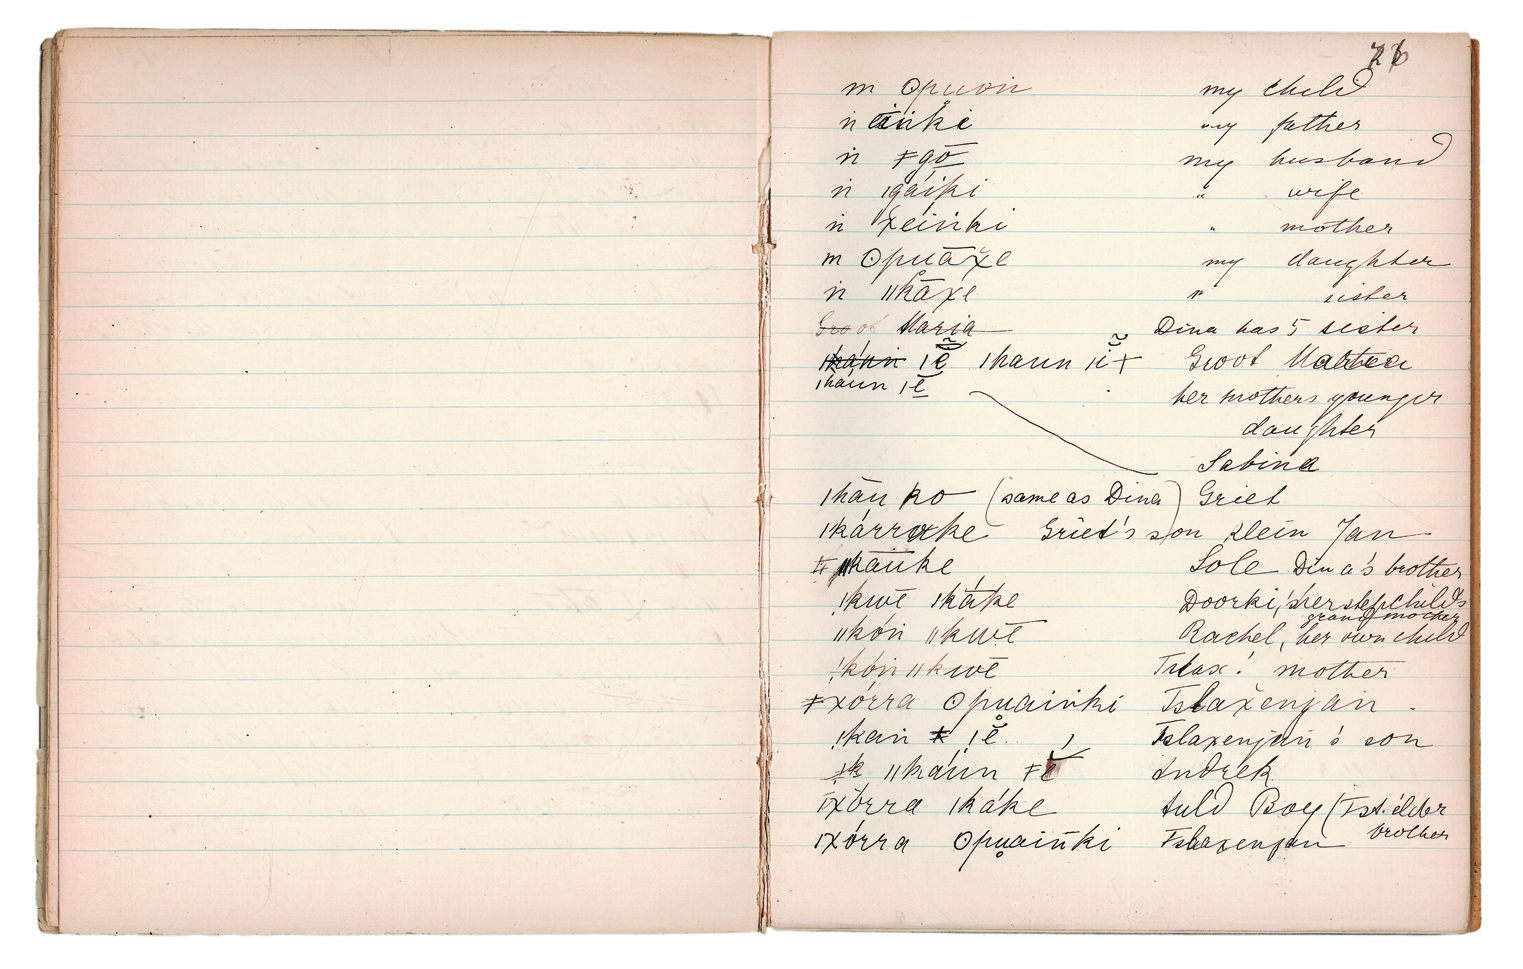 26
m ʘpuoin my child
ṅ āiṅki my father
ṅ ǂgō my husband
ṅ ǀgáiki " wife
ṅ xeiṅki " mother
m ʘpuāx̌e my daughter
ṅ ǁkāxe " sister
Groot Maria Dina has 5 sister
ǀkaun ǀi + Groot
ǀkāun ǀē
her mothers younger
daughter
Sabina
ǀkāu ko (same as Dina) Griet
ǀkárruke Griet's son Klein Jan
ǁkāuke Sole Dina's brother
ǃkwē ǀkáke Doorki, her stepchild's
grandmother
ǁkón ǁkwē Rachel, her own child
ǃkón ǁkwē Tslax! mother
ǂxórra ʘpuaiṅki Tslaxenjan.
ǃkan ǀĕ. Tslaxenjan's son
ǁkáun ǂé Andrek
ǀxórra ǀkáke Auld Boy (Tst. elder
brother
ǀxórra ʘpuaiṅki Tslaxenjan